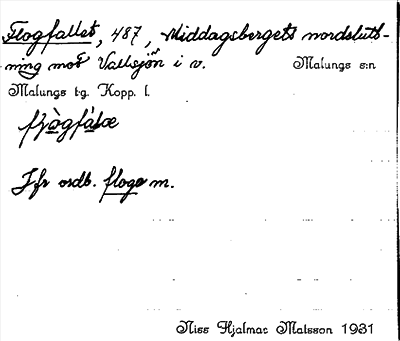 Flogfallet, 487, Middagsbergets nordslutt-
ning mot Vallsjön i v. Malungs s:n
Malungs tg. Kopp. l.
Jfr ordb. floga m.
Niss Hjalmar Matsson 1931